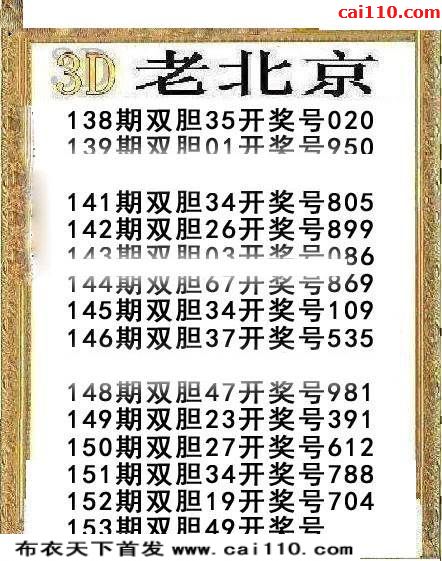 cai110.com
3D 老北京
138期双胆35开奖号020
139期双胆01开奖号950
141期双胆34开奖号805
142期双胆26开奖号899
143期双胆03开奖号086
144期双胆67开奖号869
145期双胆34开奖号109
146期双胆37开奖号535
148期双胆47开奖号981
149期双胆23开奖号391
150期双胆27开奖号612
151期双胆34开奖号788
152期双胆19开奖号704
153期双胆49开奖号
布衣天下首发 www.cai110.com